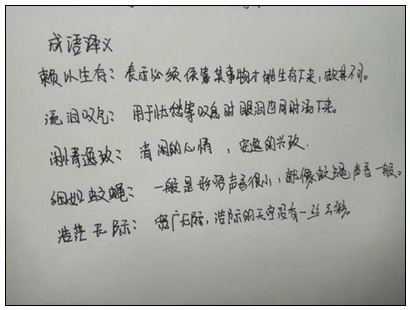 成语译义
赖以生存：表示必须依靠某事物才能生存下来，缺其不可。
流泪叹气：用于忧愁等叹息时眼泪也同时流下来。
闲情逸致：清闲的心情，安逸的兴致.
细如蚊蝇：一般是形容声音很小，就像蚊蝇声音一般。
浩茫无际：宽广无际，浩际的天空没有一丝云彩。